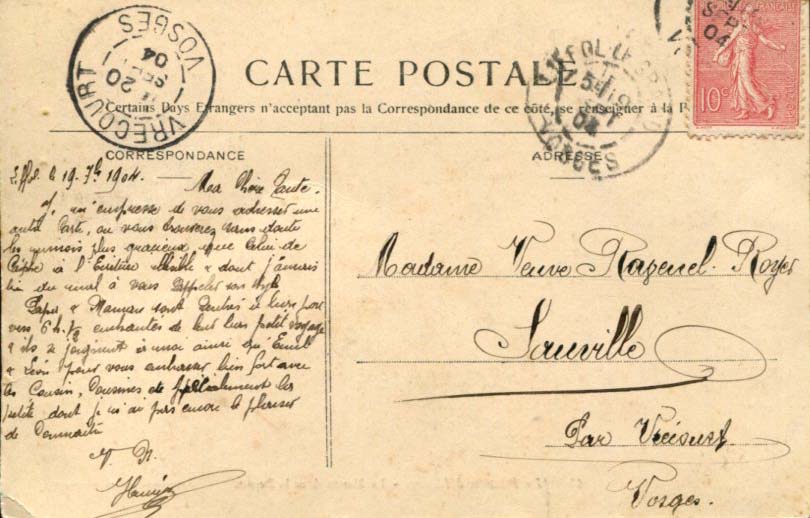 CARTE POSTALE
Certains Pays Etrangers n'acceptant pas la Correspondance de ce côté, se renseigner à la P
CORRESPONDANCE
ADRESSE
le 19. 7bre 1904.
Ma Chère Tante.
m'empresse de vous adresser une
autre Carte, ou vous trouverez sans doute
les minois plus gracieux, que celui de
à l'Ecriture & dont j'aurais
bien du mal à vous rappeler son style
Papa, & Maman sont rentrés à leur
vers 6 h. 1/2 enchantés de leur petit voyage
& ils se joignent à moi ainsi qu'
& Léon pour vous embrasser bien fort avec
les Cousin, Cousines & spécialement les
petite dont je n'ai pas encore le plaisir
de Connaître
Madame Veuve Ragenel-Royer
Sauville
Par Vrécourt
Vosges.
VRECOURT
20
04
VOSGES
04
VOSGES
10c
04